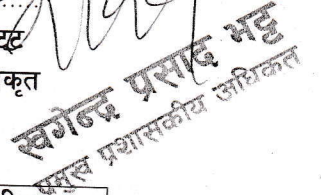 कृत
खगेन्द्र प्रसाद भट्ट
प्रमुख प्रशासकीय अधिकृत